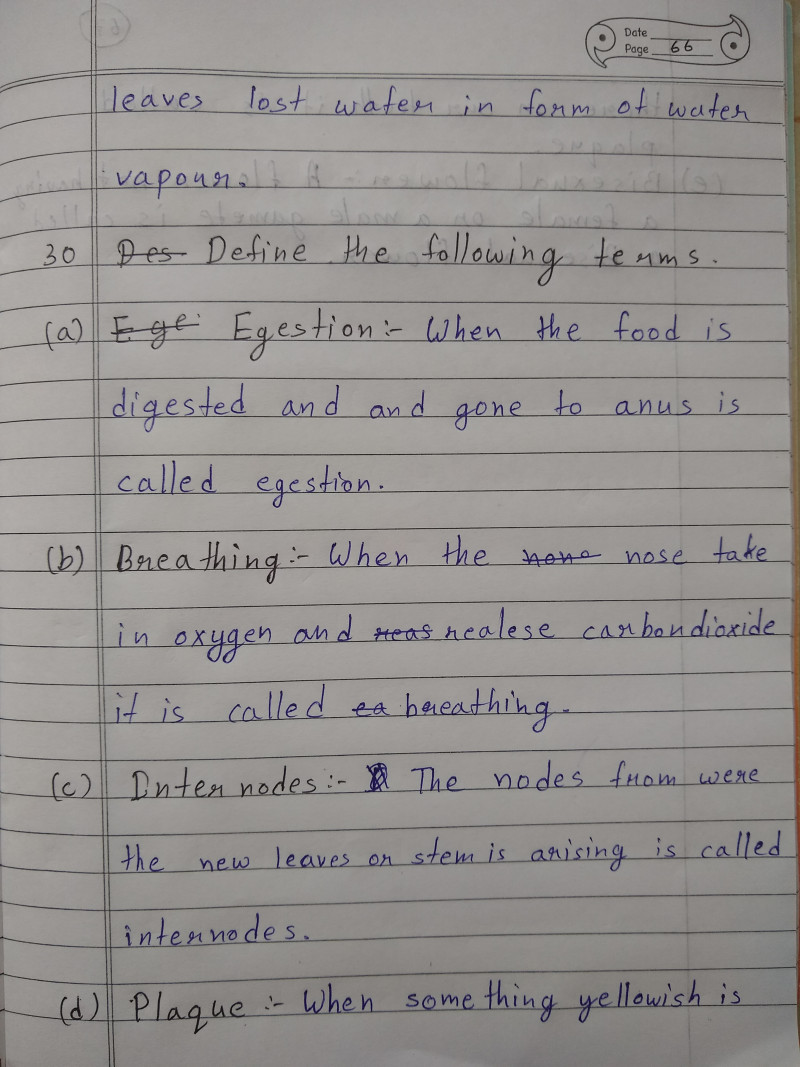 Date
Page 66
leaves lost water in form of water
vapour.
30 Des Define the following terms.
(a) Ege Egestion:- When the food is
digested and and gone to anus is
called egestion.
(b) Breathing:- When the nono nose take
in oxygen and reas realese carbondioxide
it is called ea breathing.
(c) Internodes:- The nodes from were
the new leaves or stem is arising is called
internodes.
(d) Plaque :- When something yellowish is